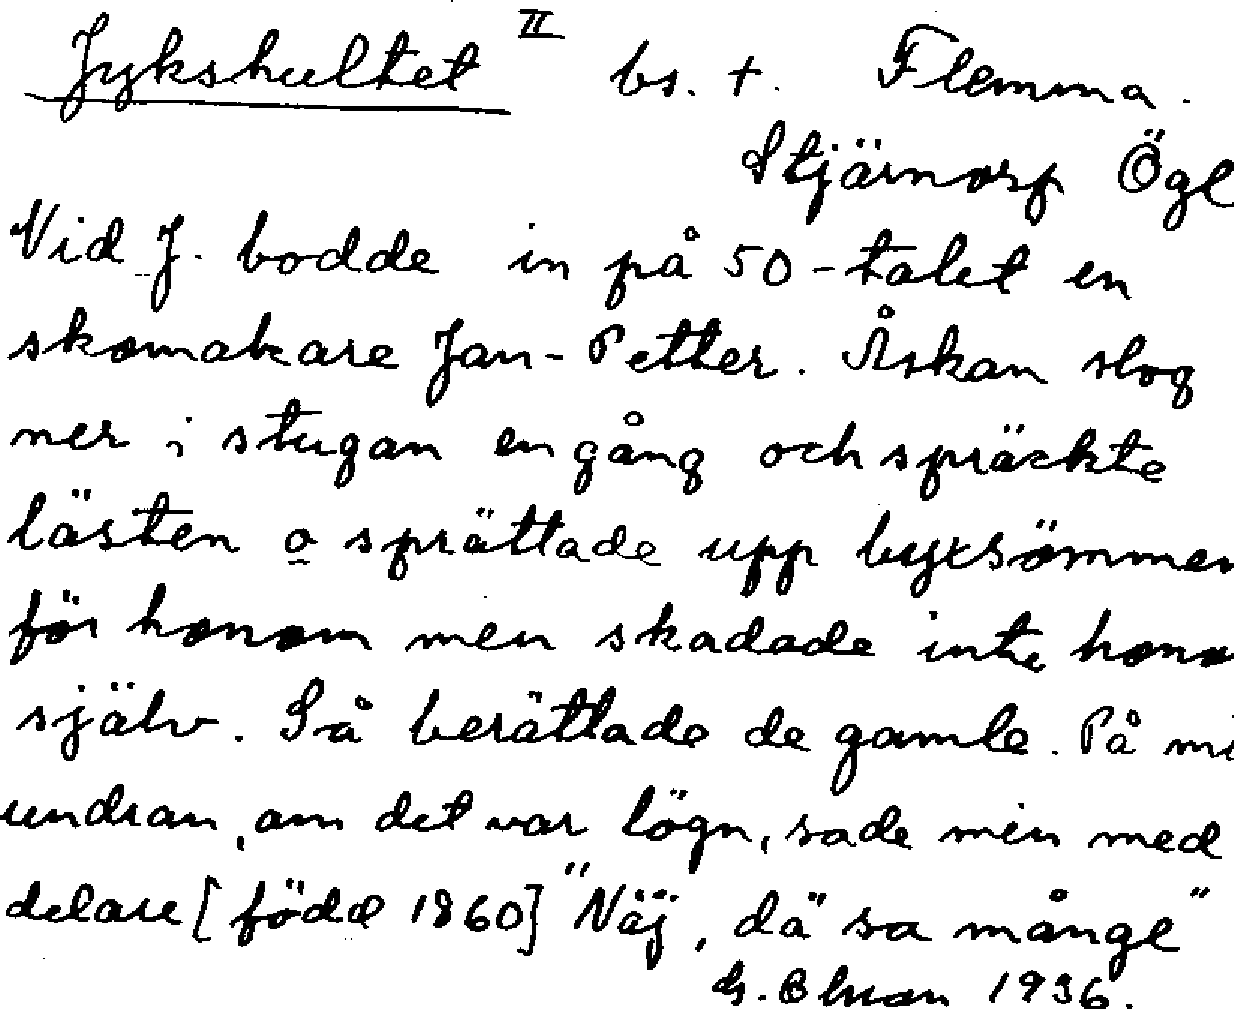 Jykshultet II bs. t. Flemma.
Stjärnorp Ögl
Vid J. bodde in på 50-talet en
skomakare Jan-Petter. Åskan slog
ner i stugan en gång och spräckte
lästen o sprättade upp byxsömmen
för honom men skadade inte hono
själv. Så berättade de gamle. På mi
undran, om det var lögn, sade min med
delare [född 1860] "Näj, dä sa månge"
1936.